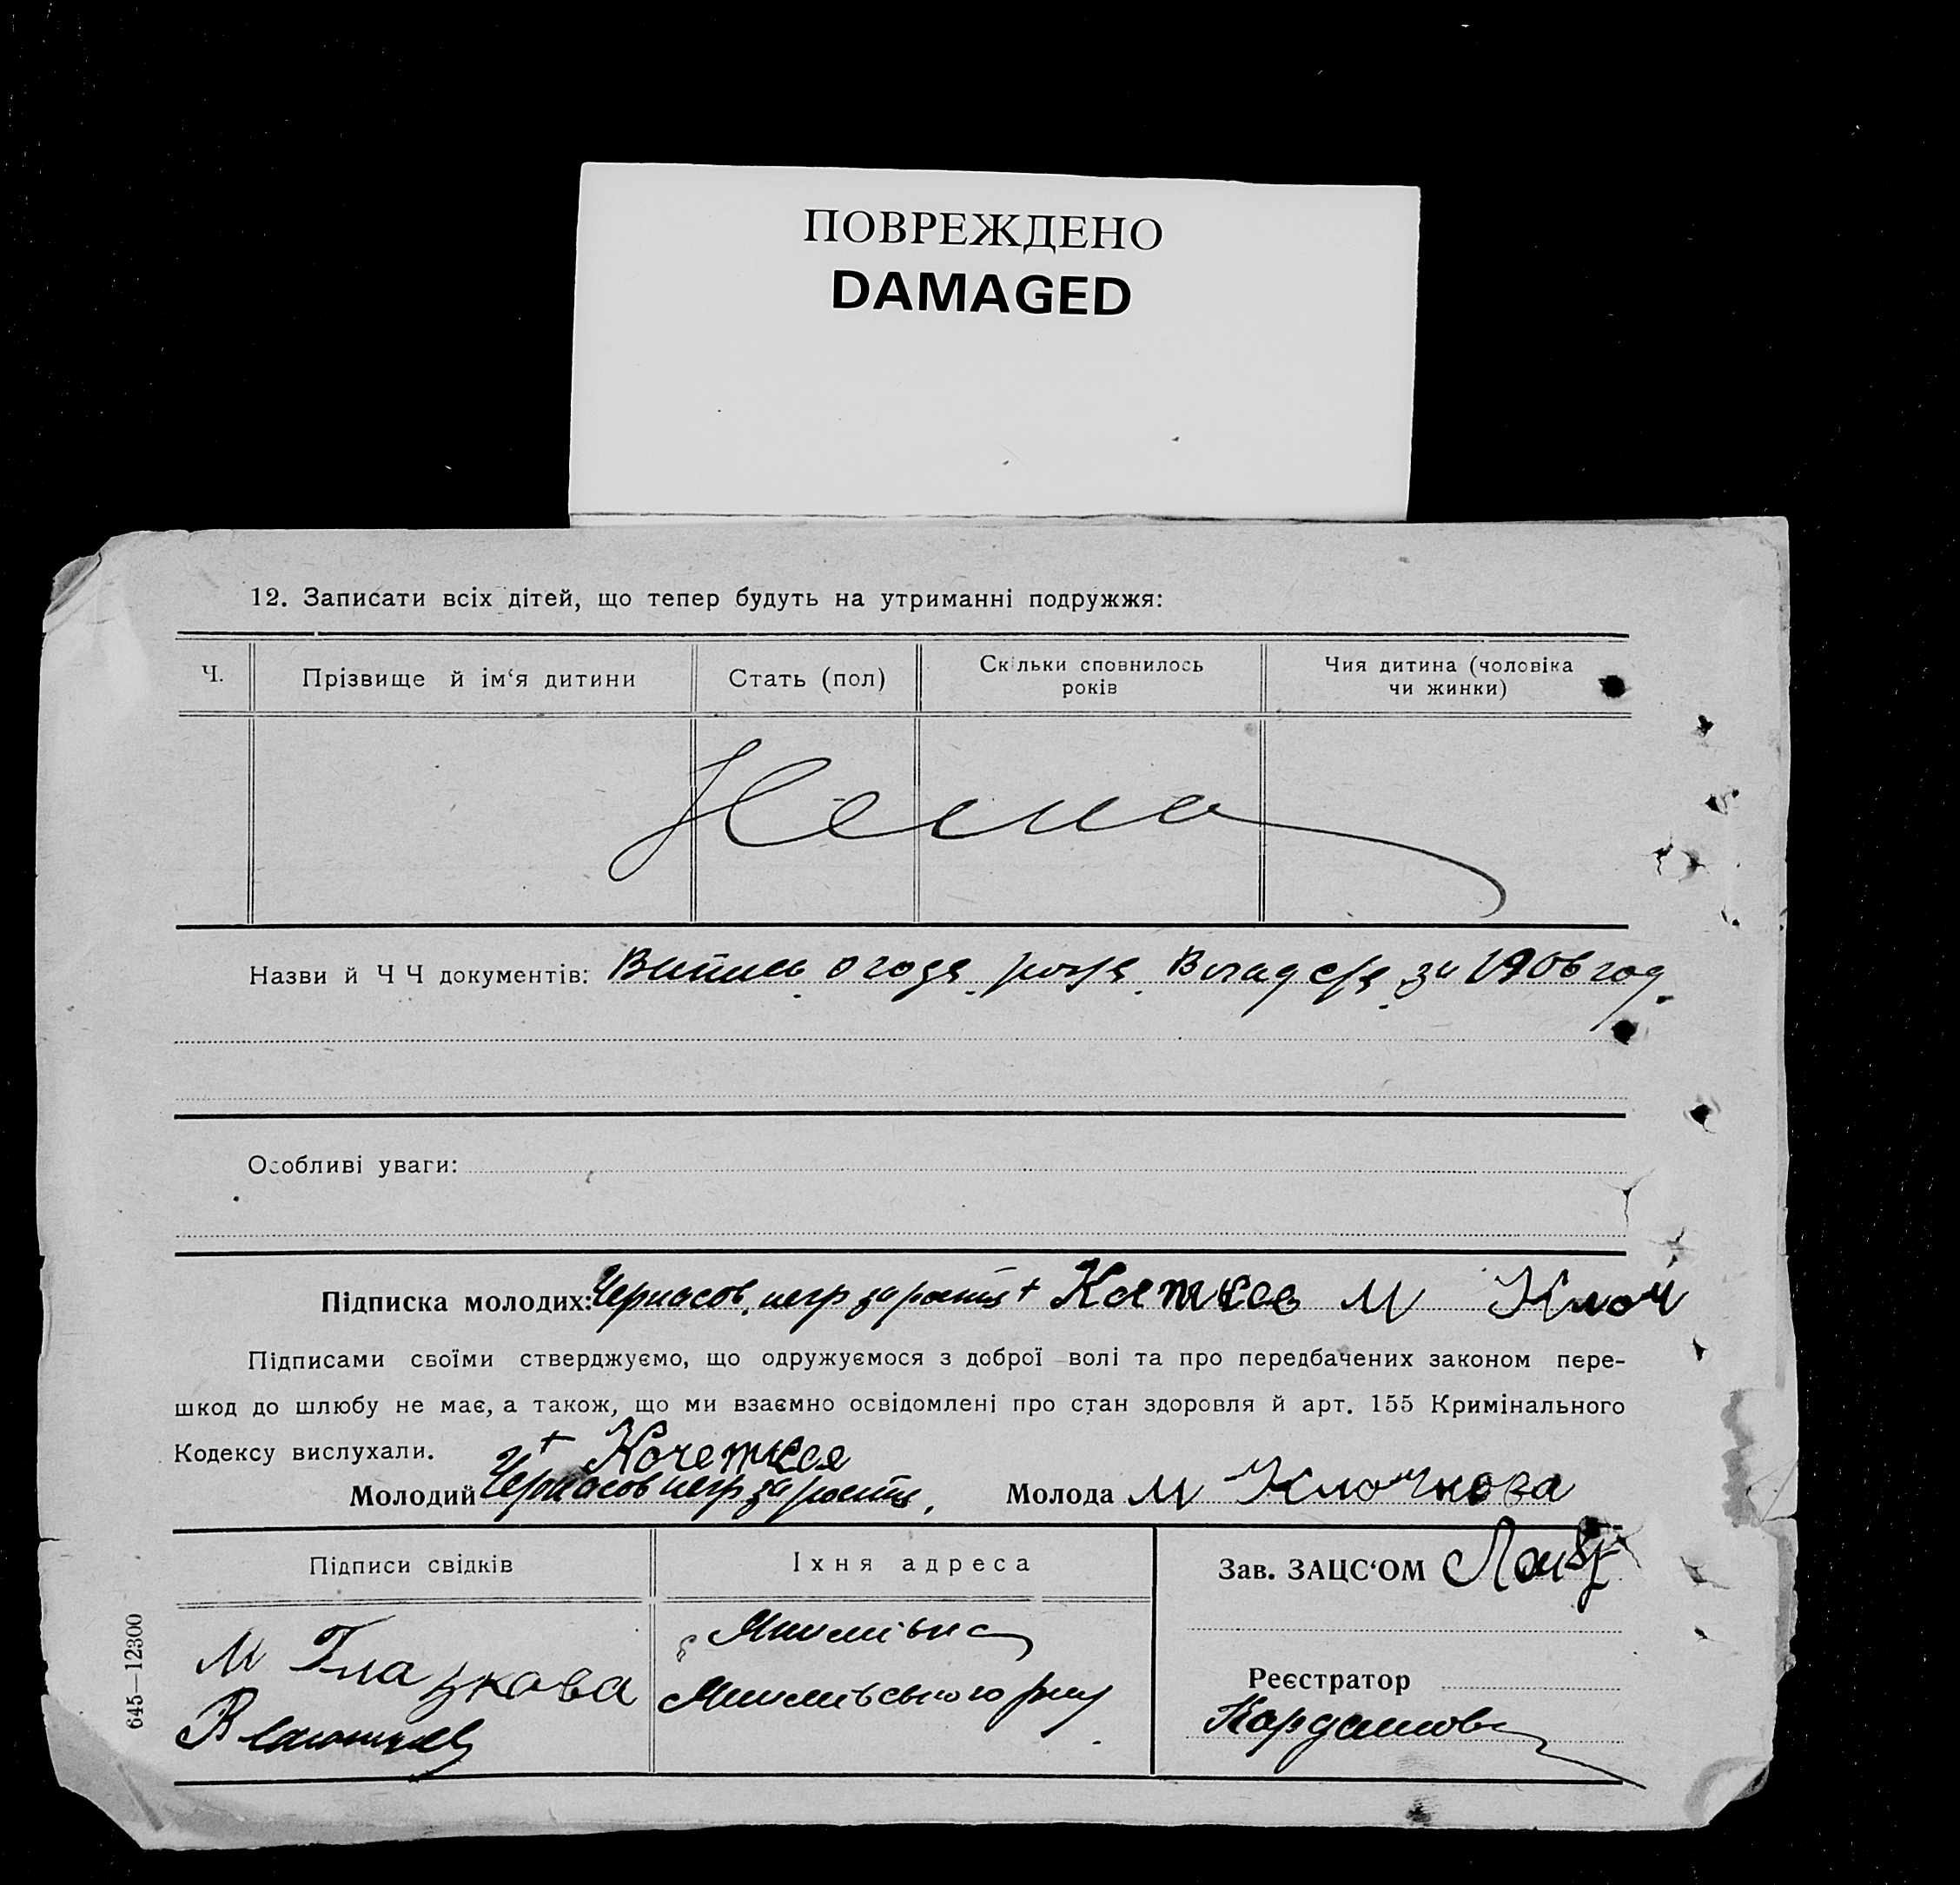 ПОВРЕЖДЕНО
DAMAGED
12. Записати всіх дітей, що тепер будуть на утриманні подружжя:
Ч.
Прізвище й ім‘я дитини
Стать (пол)
Скільки сповнилось
років
Чия дитина (чоловіка
чи жинки)
Нема
Назви й Ч Ч документів: за 1906 год
Особливі уваги:
Підписка молодих: негр + М Клоч
Підписами своїми стверджуємо, що одружуємося з доброї волі та про передбачених законом пере-
шкод до шлюбу не має, а також, що ми взаємно освідомлені про стан здоровля й арт. 155 Кримінального
Кодексу вислухали.
+ Кочетков
Молодий Молода М Клочкова
Підписи свідків
Їхня адреса
Зав. ЗАЦС‘ОМ
М Глазкова
Реєстратор
645—12300